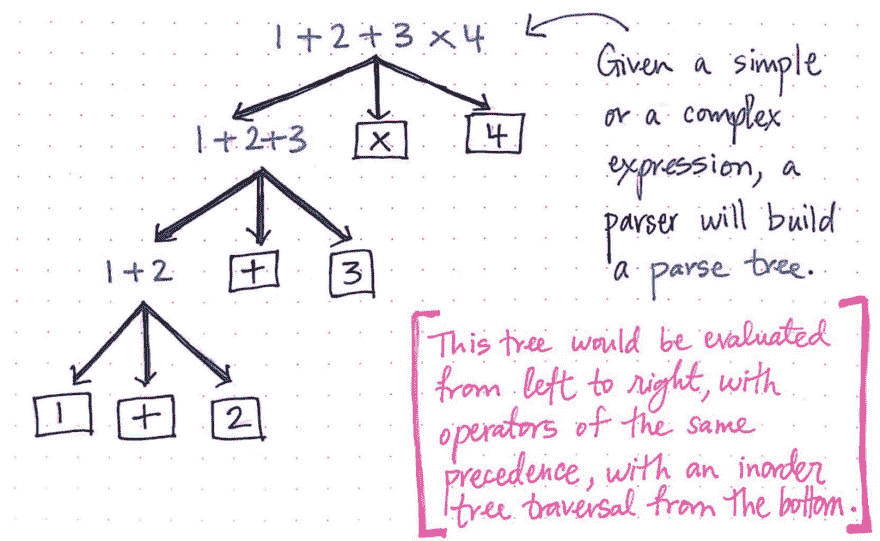 1 + 2 + 3 × 4
Given a simple
or a complex
expression, a
parser will build
a parse tree.
1 + 2 + 3
×
4
1 + 2
+
3
1
+
2
This tree would be evaluated
from left to right, with
operators of the same
precedence, with an inorder
tree traversal from the bottom.